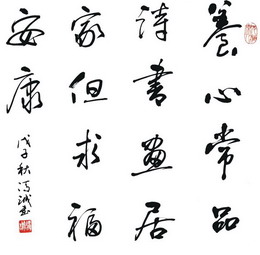 養心常品
诗書畫居
家但求福
安康
戊子秋冯诚书